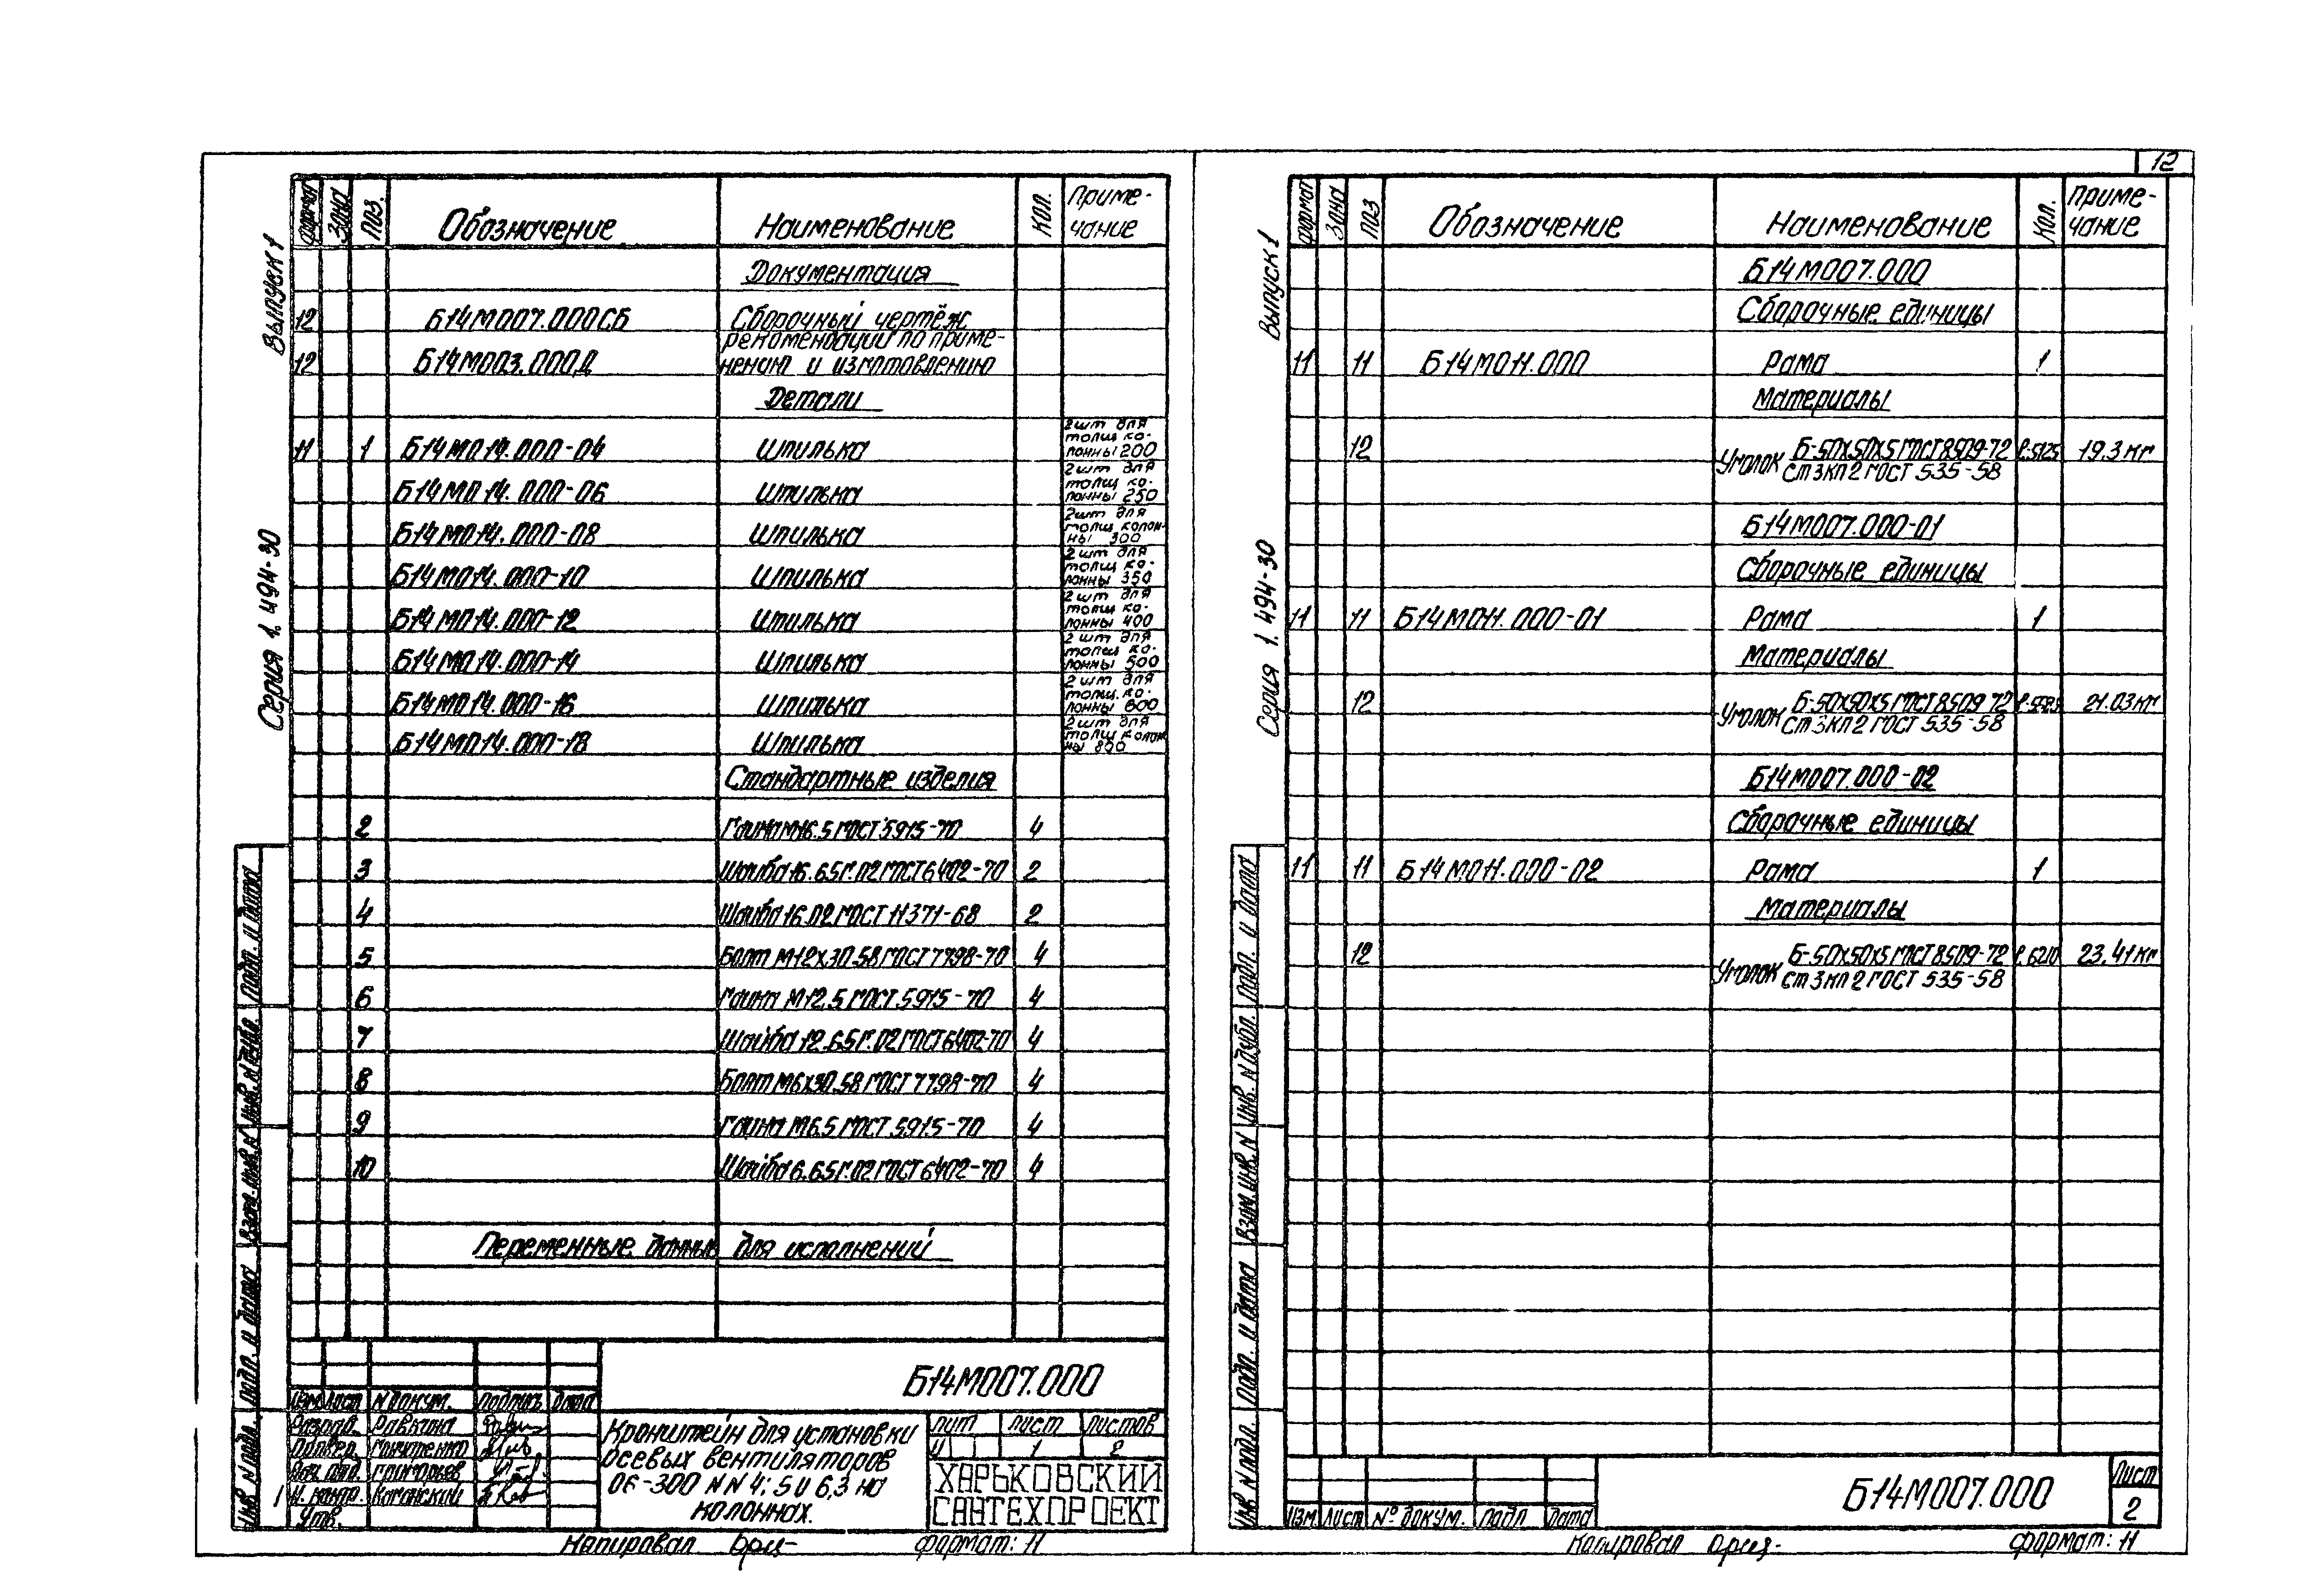 12
Выпуск 1
Серия 1.494-30
Формат Зона Поз. Обозначение Наименование Кол. Примечание
Документация
12 Б14М007.000СБ Сборочный чертёж
12 Б14М003.000Д Рекомендации по применению и изготовлению
Детали
11 1 Б14М014.000-04 Шпилька 2 шт для толщ колонны 200
Б14М014.000-06 Шпилька 2 шт для толщ колонны 250
Б14М014.000-08 Шпилька 2 шт для толщ колонны 300
Б14М014.000-10 Шпилька 2 шт для толщ колонны 350
Б14М014.000-12 Шпилька 2 шт для толщ колонны 400
Б14М014.000-14 Шпилька 2 шт для толщ колонны 500
Б14М014.000-16 Шпилька 2 шт для толщ. колонны 600
Б14М014.000-18 Шпилька 2 шт для толщ колонны 800
Стандартные изделия
2 Гайка М16.5 ГОСТ 5915-70 4
3 Шайба 16.65Г.02 ГОСТ 6402-70 2
4 Шайба 16.02 ГОСТ 11371-68 2
5 Болт М12х30.58 ГОСТ 7798-70 4
6 Гайка М12.5 ГОСТ 5915-70 4
7 Шайба 12.65Г.02 ГОСТ 6402-70 4
8 Болт М6х30.58 ГОСТ 7798-70 4
9 Гайка М6.5 ГОСТ 5915-70 4
10 Шайба 6.65Г.02 ГОСТ 6402-70 4
Переменные данные для исполнений
Б14М007.000
Изм Лист N докум. Подпись Дата
Разраб. Равкина
Провер.
Григорьев
Н. контр. Каганский
Утв.
Кронштейн для установки
осевых вентиляторов
06-300 N N 4; 5 и 6,3 на
колоннах.
Лит Лист Листов
И 1 2
ХАРЬКОВСКИЙ
САНТЕХПРОЕКТ
Инв. N подл. Подп. и дата Взам. инв. N Инв. N дубл. Подп. и дата
Копировал Формат: 11
Выпуск 1
Серия 1.494-30
Формат Зона Поз Обозначение Наименование Кол. Примечание
Б14М007.000
Сборочные единицы
11 11 Б14М011.000 Рама 1
Материалы
12 Уголок Б-50х50х5 ГОСТ 8509-72 ℓ.5125 19.3 кг
Ст3кп2 ГОСТ 535-58
Б14М007.000-01
Сборочные единицы
11 11 Б14М011.000-01 Рама 1
Материалы
12 Уголок Б-50х50х5 ГОСТ 8509-72 21.03 кг
Ст3кп2 ГОСТ 535-58
Б14М007.000-02
Сборочные единицы
11 11 Б14М011.000-02 Рама 1
Материалы
12 Уголок Б-50х50х5 ГОСТ 8509-72 ℓ.6210 23.41 кг
Ст3кп2 ГОСТ 535-58
Инв. N подл. Подп. и дата Взам инв. N Инв. N дубл. Подп. и дата
Изм Лист N° докум. Подп Дата
Б14М007.000
Лист
2
Копировал Формат: 11